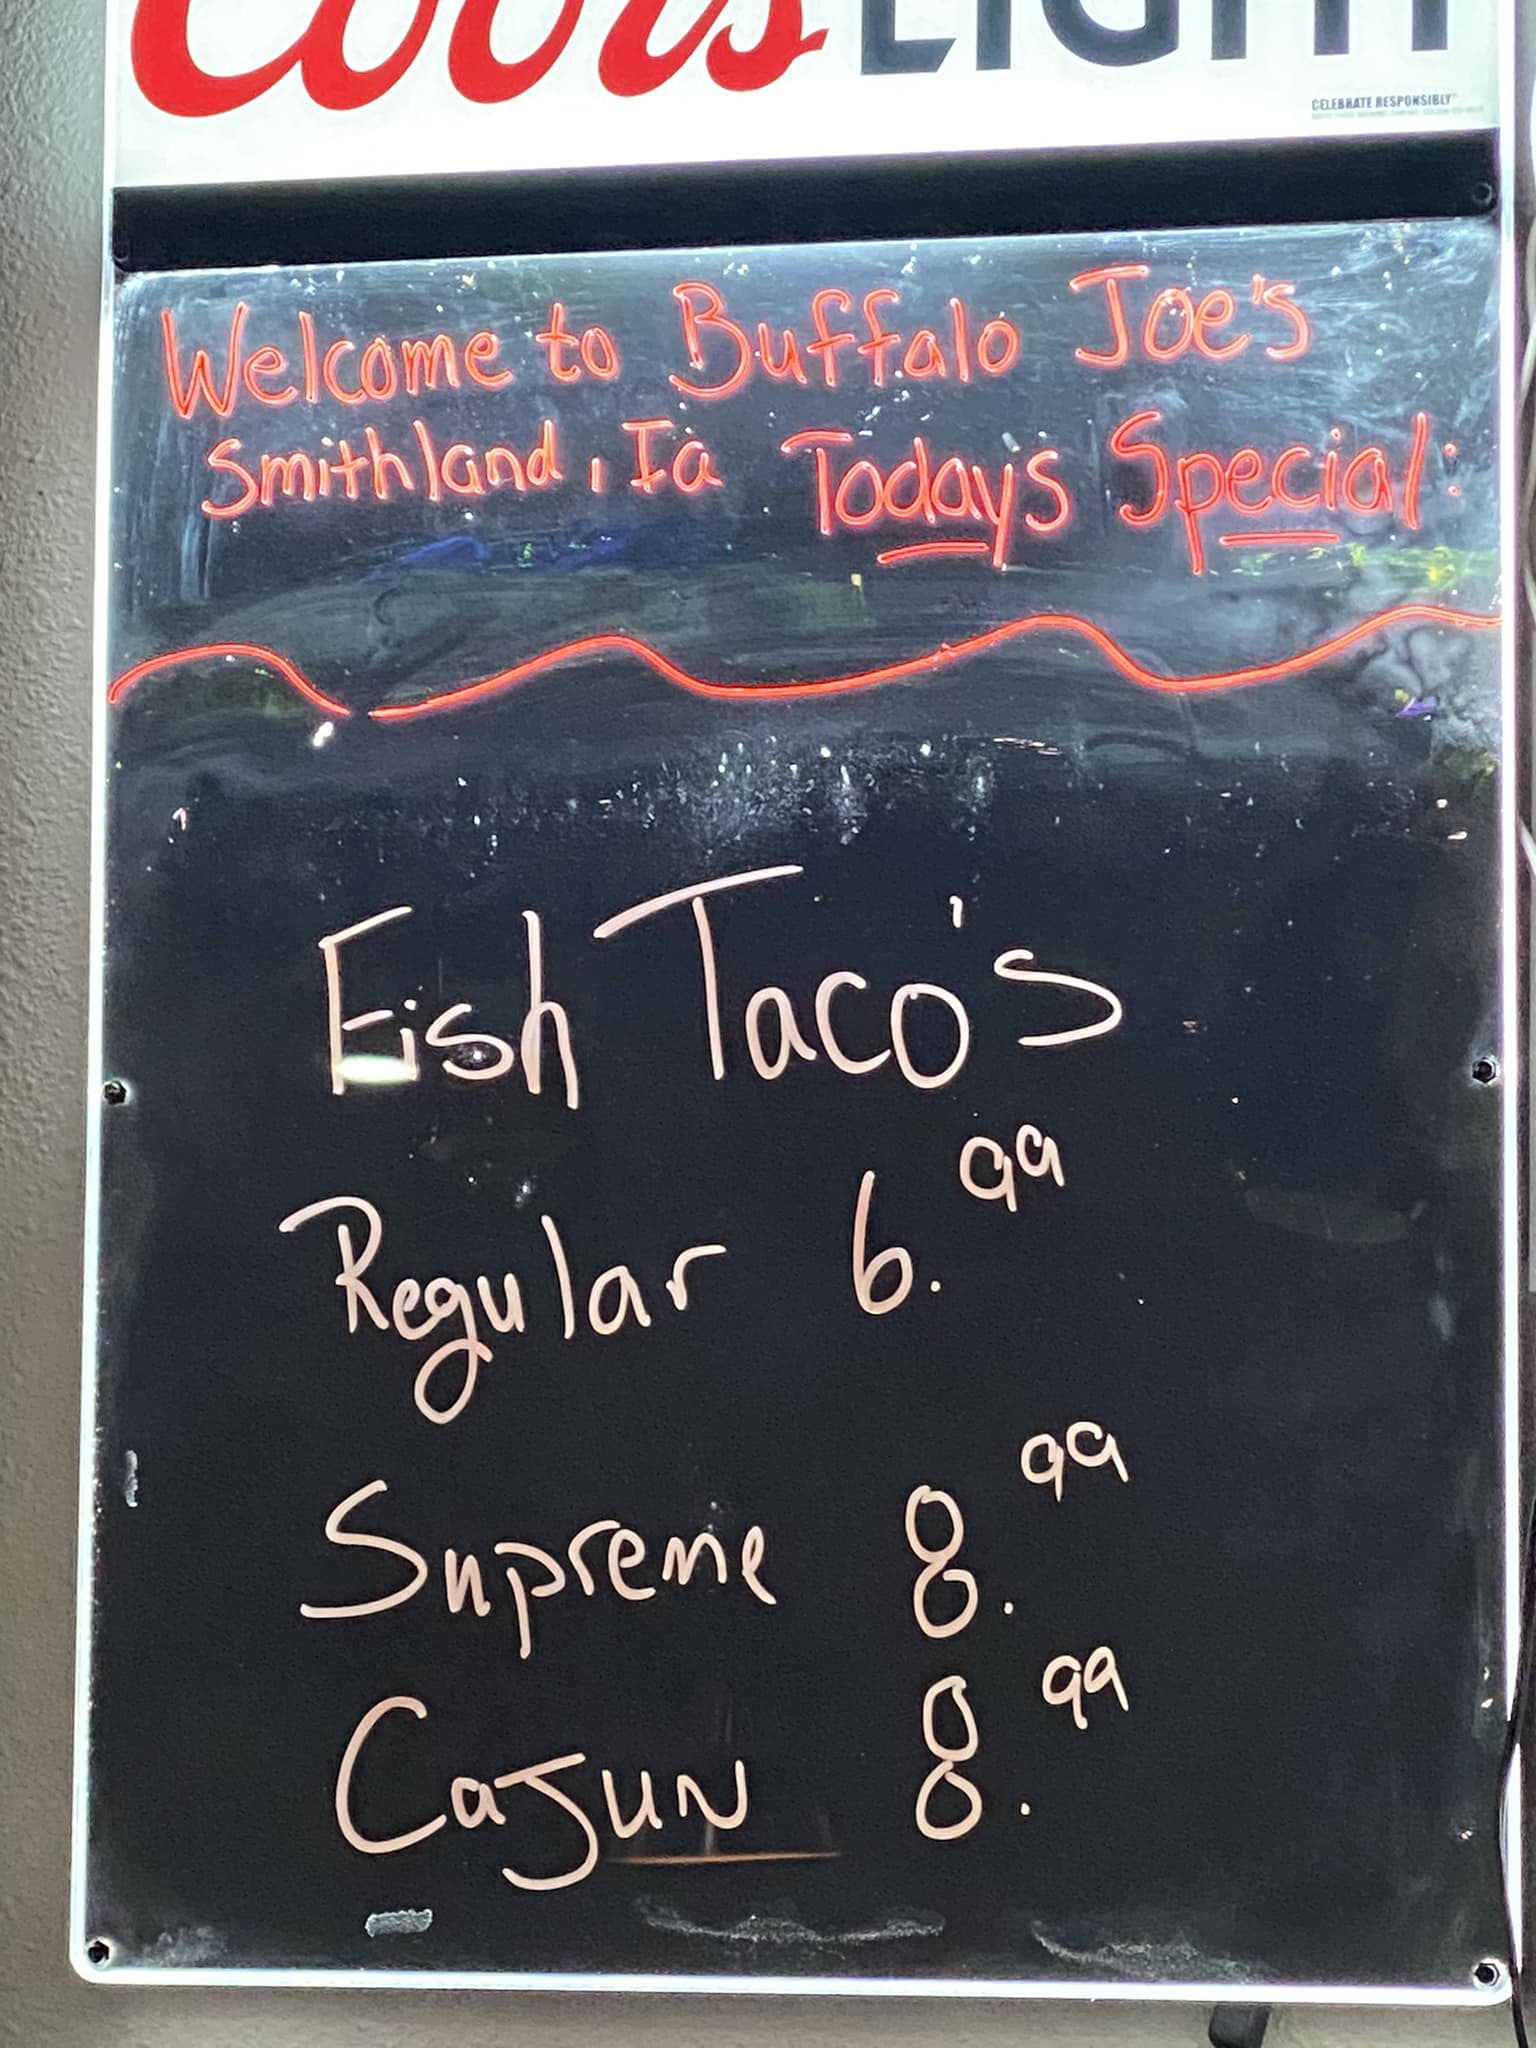 Coors LIGHT
CELEBRATE RESPONSIBLY
Welcome to Buffalo Joe's
Smithland, Ia Todays Special:
Fish Taco's
Regular 6.99
Supreme 8.99
Cajun 8.99